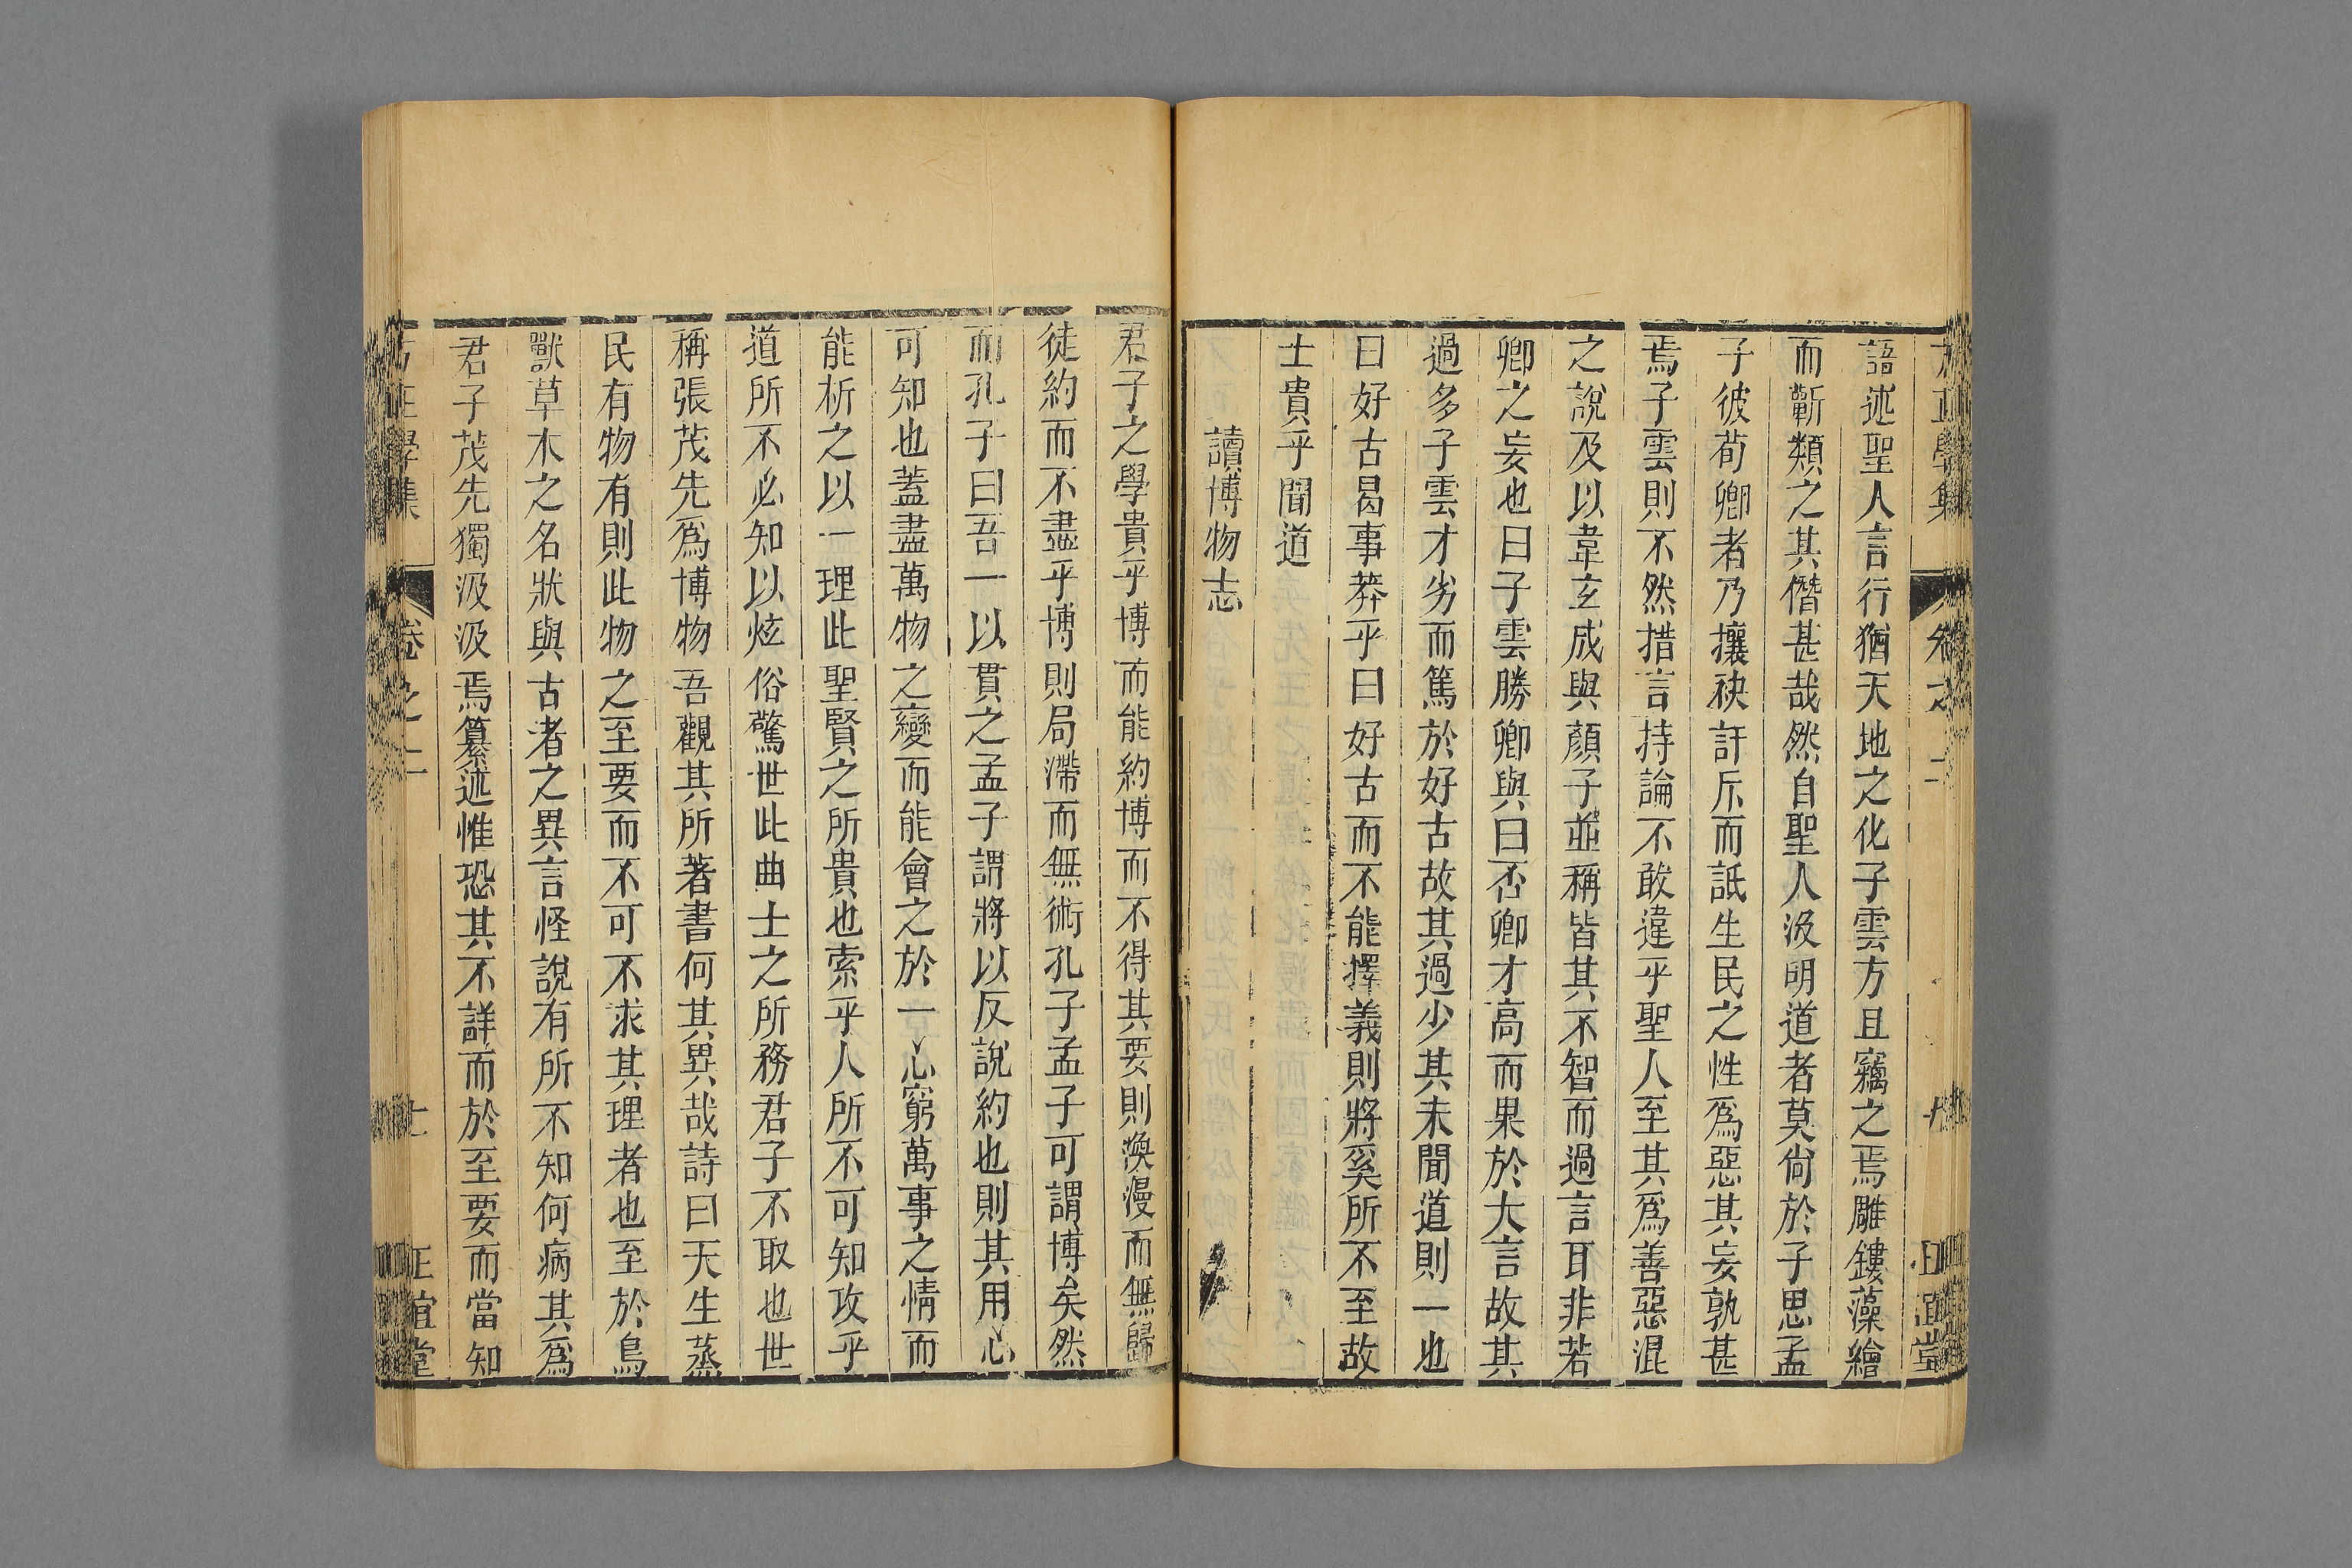 語述聖人言行猶天地之化子雲方且竊之焉雕鏤藻繪
而蘄類之其僭甚哉然自聖人沒明道者莫尚於子思孟
子彼荀卿者乃攘袂訐斥而詆生民之性爲惡其妄孰甚
焉子雲則不然措言持論不敢違乎聖人至其爲善惡混
之說及以韋玄成與顏子並稱皆其不智而過言耳非若
卿之妄也曰子雲勝卿與曰否卿才高而果於大言故其
過多子雲才劣而篤於好古故其過少其未聞道則一也
曰好古曷事莽乎曰好古而不能擇義則將奚所不至故
士貴乎聞道
讀博物志
君子之學貴乎博而能約博而不得其要則渙漫而無歸
徒約而不盡乎博則局滯而無術孔子孟子可謂博矣然
而孔子曰吾一以貫之孟子謂將以反說約也則其用心
可知也蓋盡萬物之變而能會之於一心窮萬事之情而
能析之以一理此聖賢之所貴也索乎人所不可知攻乎
道所不必知以炫俗驚世此曲士之所務君子不取也世
稱張茂先爲博物吾觀其所著書何其異哉詩曰天生蒸
民有物有則此物之至要而不可不求其理者也至於鳥
獸草木之名狀與古者之異言怪說有所不知何病其爲
君子茂先獨汲汲焉纂述惟恐其不詳而於至要而當知
方正學集 卷之二 七 正誼堂